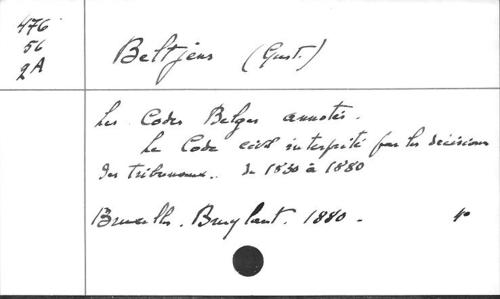 476
56
2A
Beltjens (Gust.)
Les Codes Belges annotés.
Le Code civil interprété par les décisions
des tribunaux.. de 1830 à 1880
Bruxelles. Bruylant. 1880. 4o